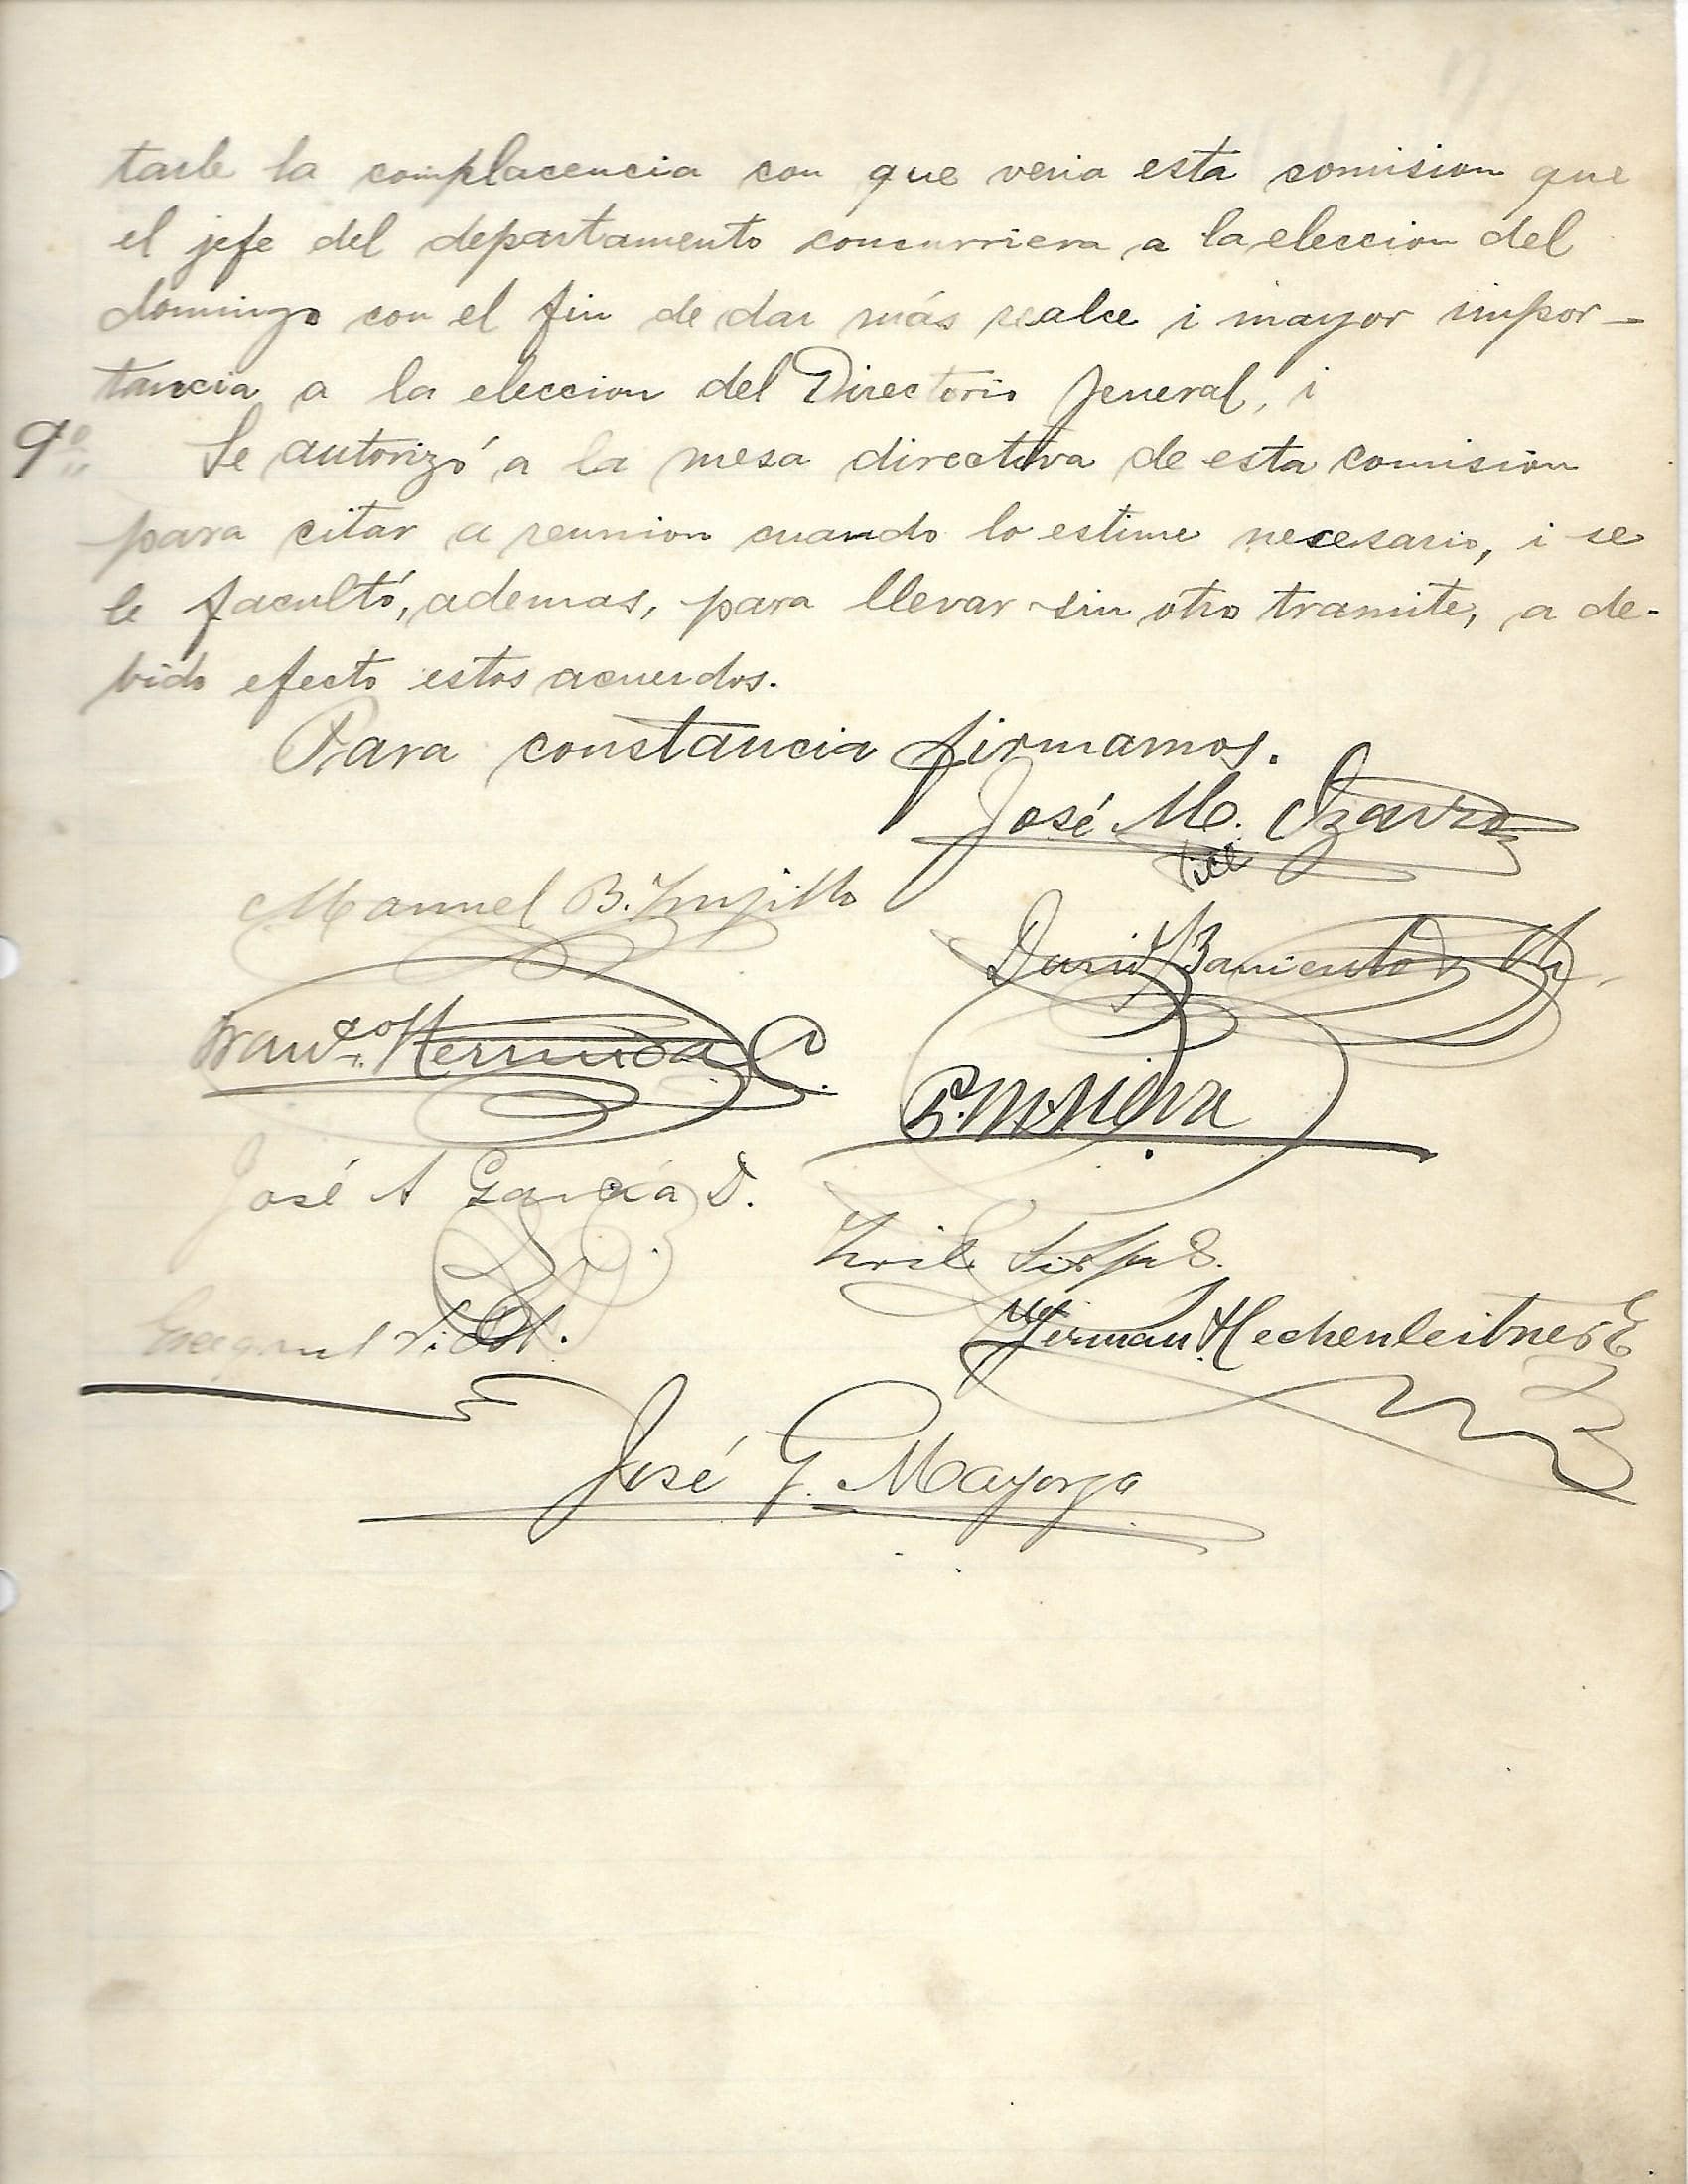 tarle la complacencia con que veria esta comision que
el jefe del departamento concurriera a la eleccion del
domingo con el fin de dar más realce i mayor impor-
tancia a la eleccion del Directorio Jeneral, i
9º Se autorizó a la mesa directiva de esta comision
para citar a reunion cuando lo estime necesario, i se
le facultó, ademas, para llevar sin otro tramite, a de-
bido efecto estos acuerdos.
Para constancia firmamos.
José M.
Manuel B. Trujillo
David Barrientos
Hermida C.
José A García D.
German Hechenleitner E
José G. Mayorga